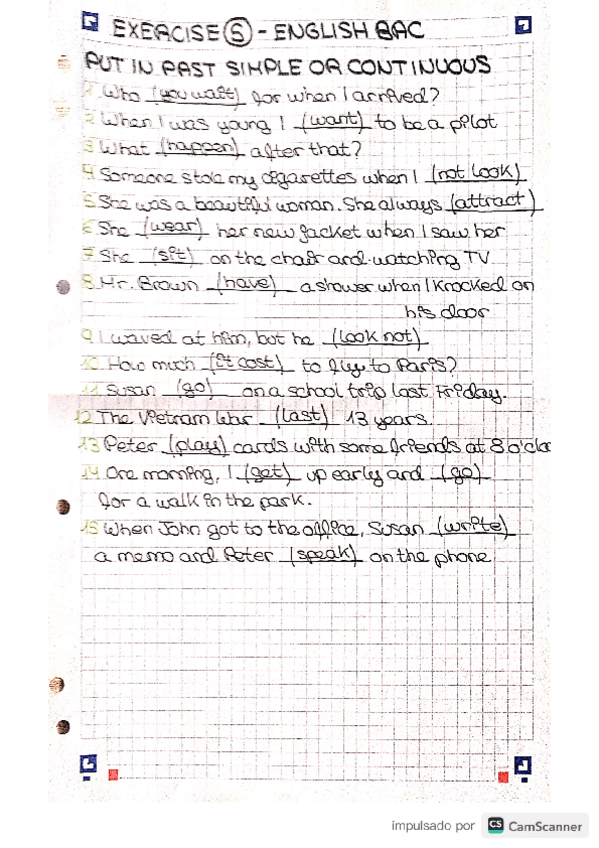 EXERCISE ⑤ - ENGLISH BAC
PUT IN PAST SIMPLE OR CONTINUOUS
1 Who (you wait) for when I arrived?
2 When I was young I (want) to be a pilot
3 What (happen) after that?
4 Someone stole my cigarettes when I (not look)
5 She was a beautiful woman. She always (attract)
6 She (wear) her new jacket when I saw her
7 She (sit) on the chair and watching TV
8 Mr. Brown (have) a shower when I knocked on
his door
9 I waved at him, but he (look not)
10 How much (it cost) to fly to Paris?
11 Susan (go) on a school trip last Friday.
12 The Vietnam War (last) 13 years.
13 Peter (play) cards with some friends at 8 o'clo
14 One morning, I (get) up early and (go)
for a walk in the park.
15 When John got to the office, Susan (write)
a memo and Peter (speak) on the phone
impulsado por CS CamScanner